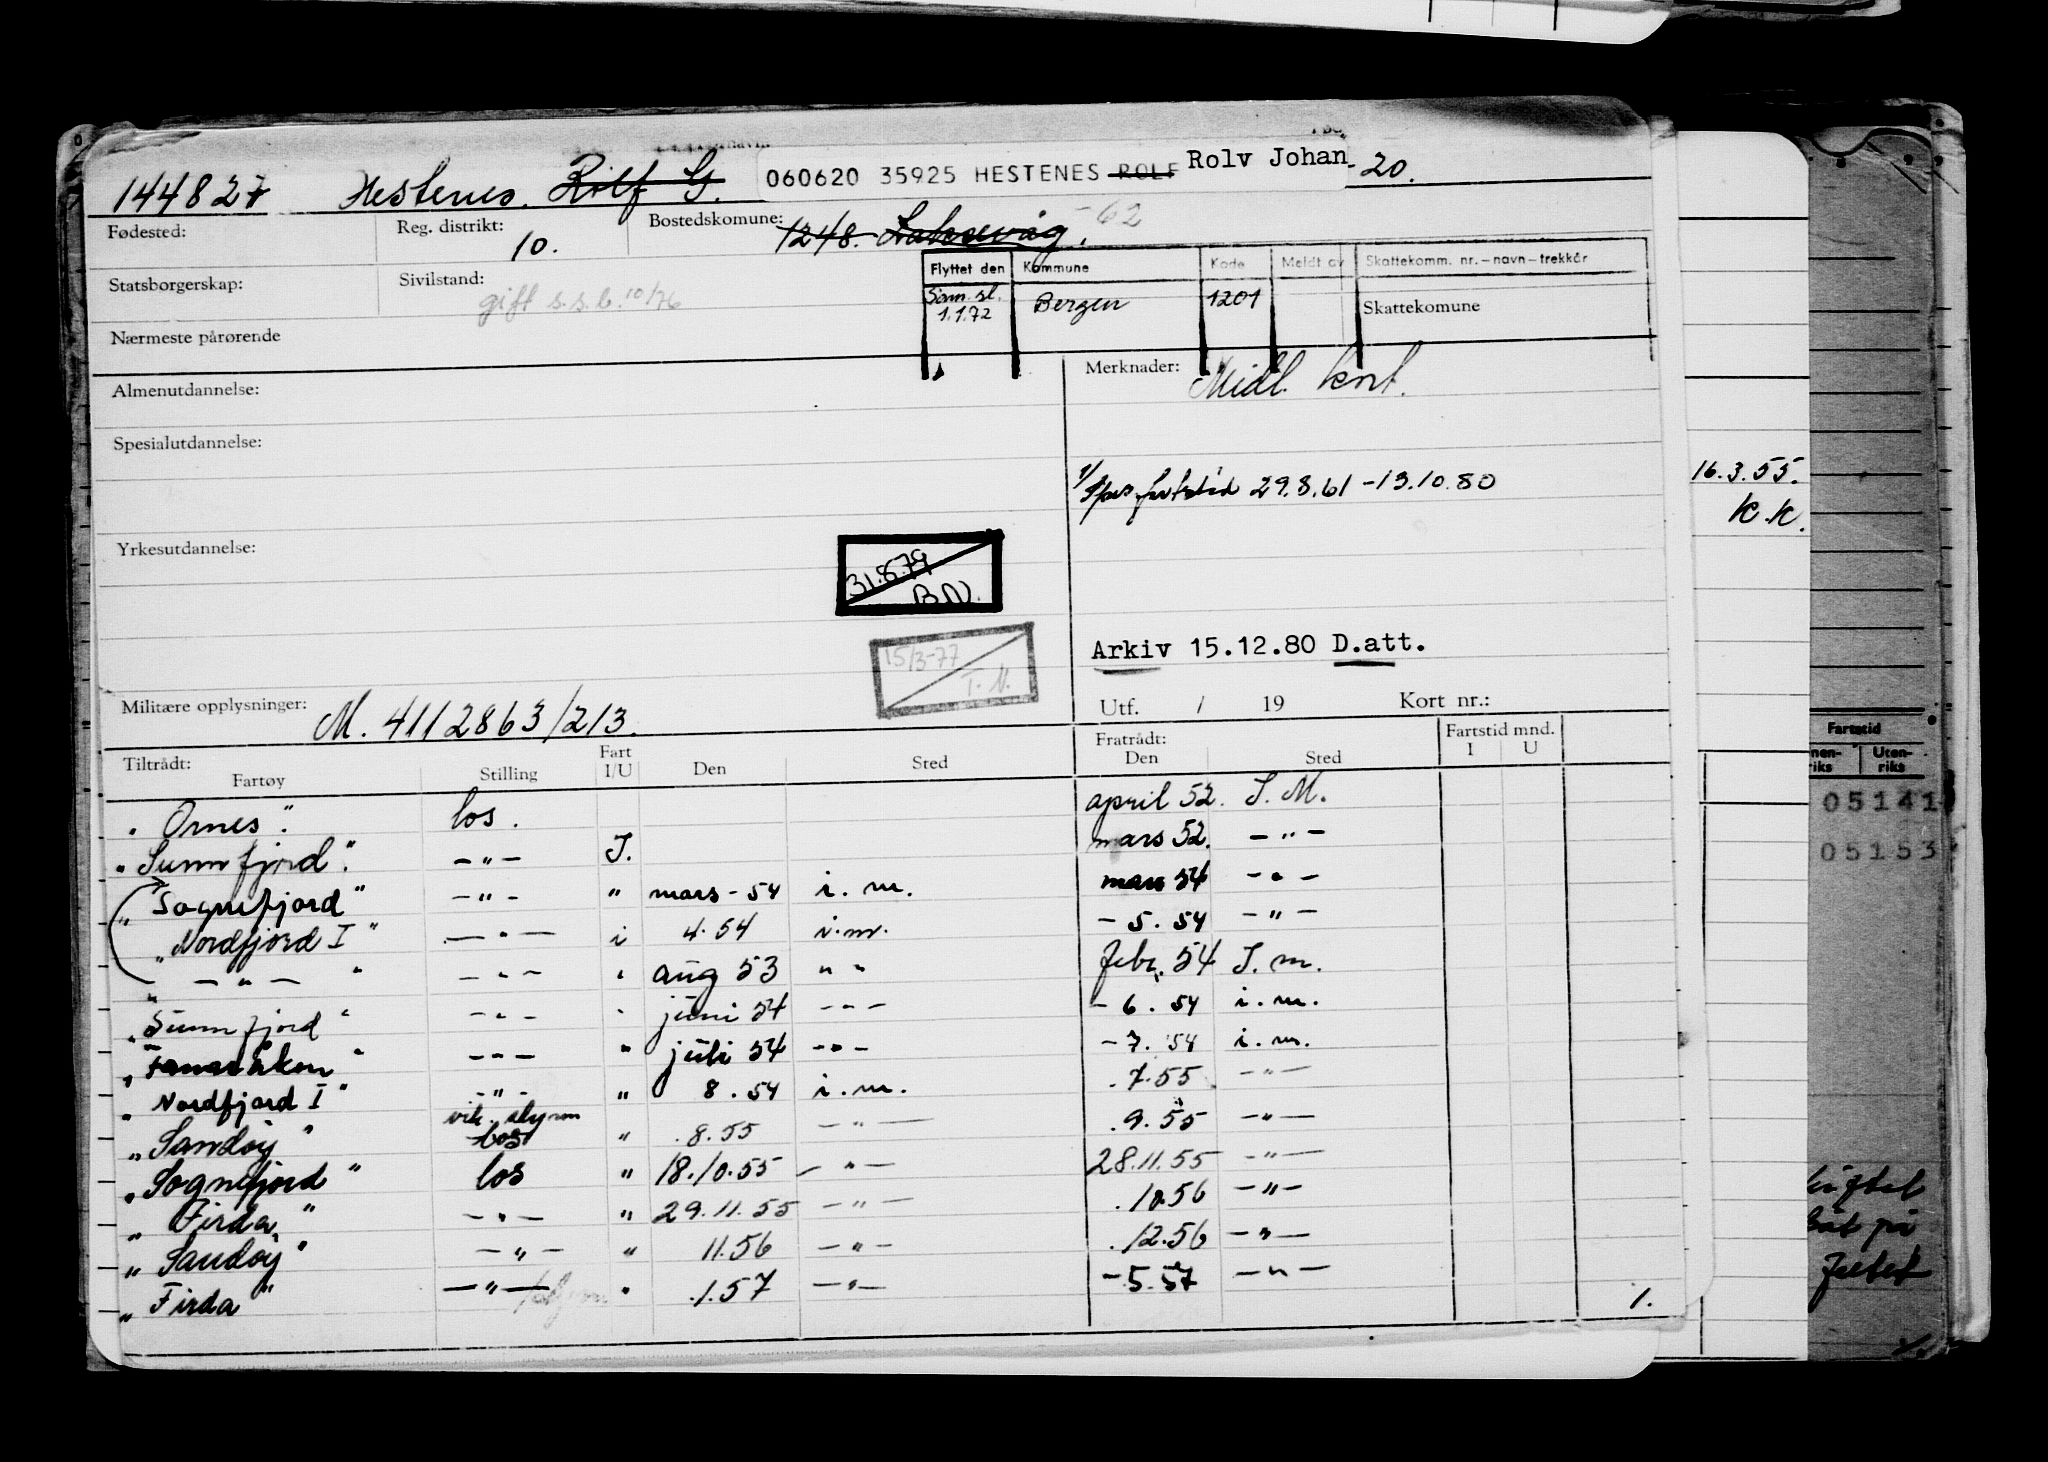 144827 Hestenes. Rolf G. 060620 35925 HESTENES ROLF Rolv Johan -20.
Fødested: Reg. distrikt: 10. Bostedskomune: 1248. Laksevåg. -62
Flyttet den Kommune Kode Meldt av Skattekomm. nr.-navn-trekkår
Statsborgerskap: Sivilstand: gift s.s.b. 10/76
Sam. sl. 1.1.72 Bergen 1201 Skattekomune
Nærmeste pårørende
Almenutdannelse: Merknader: Midl. kort.
Spesialutdannelse:
1/ fartstid 29.8.61-13.10.80
16.3.55.
K.K.
Yrkesutdannelse: 31.8.79
B.N.
15/3-77
T.N.
Arkiv 15.12.80 D.att.
Militære opplysninger: M. 4112863/213. Utf. / 19 Kort nr.:
Tiltrådt: Fratrådt: Fartstid mnd.
Fartøy Stilling Fart I/U Den Sted Den Sted I U
" Ornes". los. april 52. I. M.
" Sunnfjord". -"- I. mars 52. -"-
" Sognefjord" -"- " mars-54 i.m. mars 54 -"-
" Nordfjord I" -"- i 4.54 i.m. -5.54 -"-
" -"- " -"- " aug 53 " " febr. 54 I.m.
" Sunnfjord" -"- " juni 54 -"- -6.54 i.m.
" -"- " juli 54 -"- -7.54 i.m.
" Nordfjord I" -"- " 8.54 i.m. .7.55 -"-
" Sandøy" vik. styrm los " .8.55 -"- .9.55 -"-
" Sognefjord" los " 18.10.55 -"- 28.11.55 -"-
" Firda" -"- " 29.11.55 -"- .10.56 -"-
" Sandøy" -"- " 11.56 -"- .12.56 -"-
" Firda" -"- " .1.57 -"- -5.57 -"-
1.
Fartstid
Uten-
riks
05141
05153